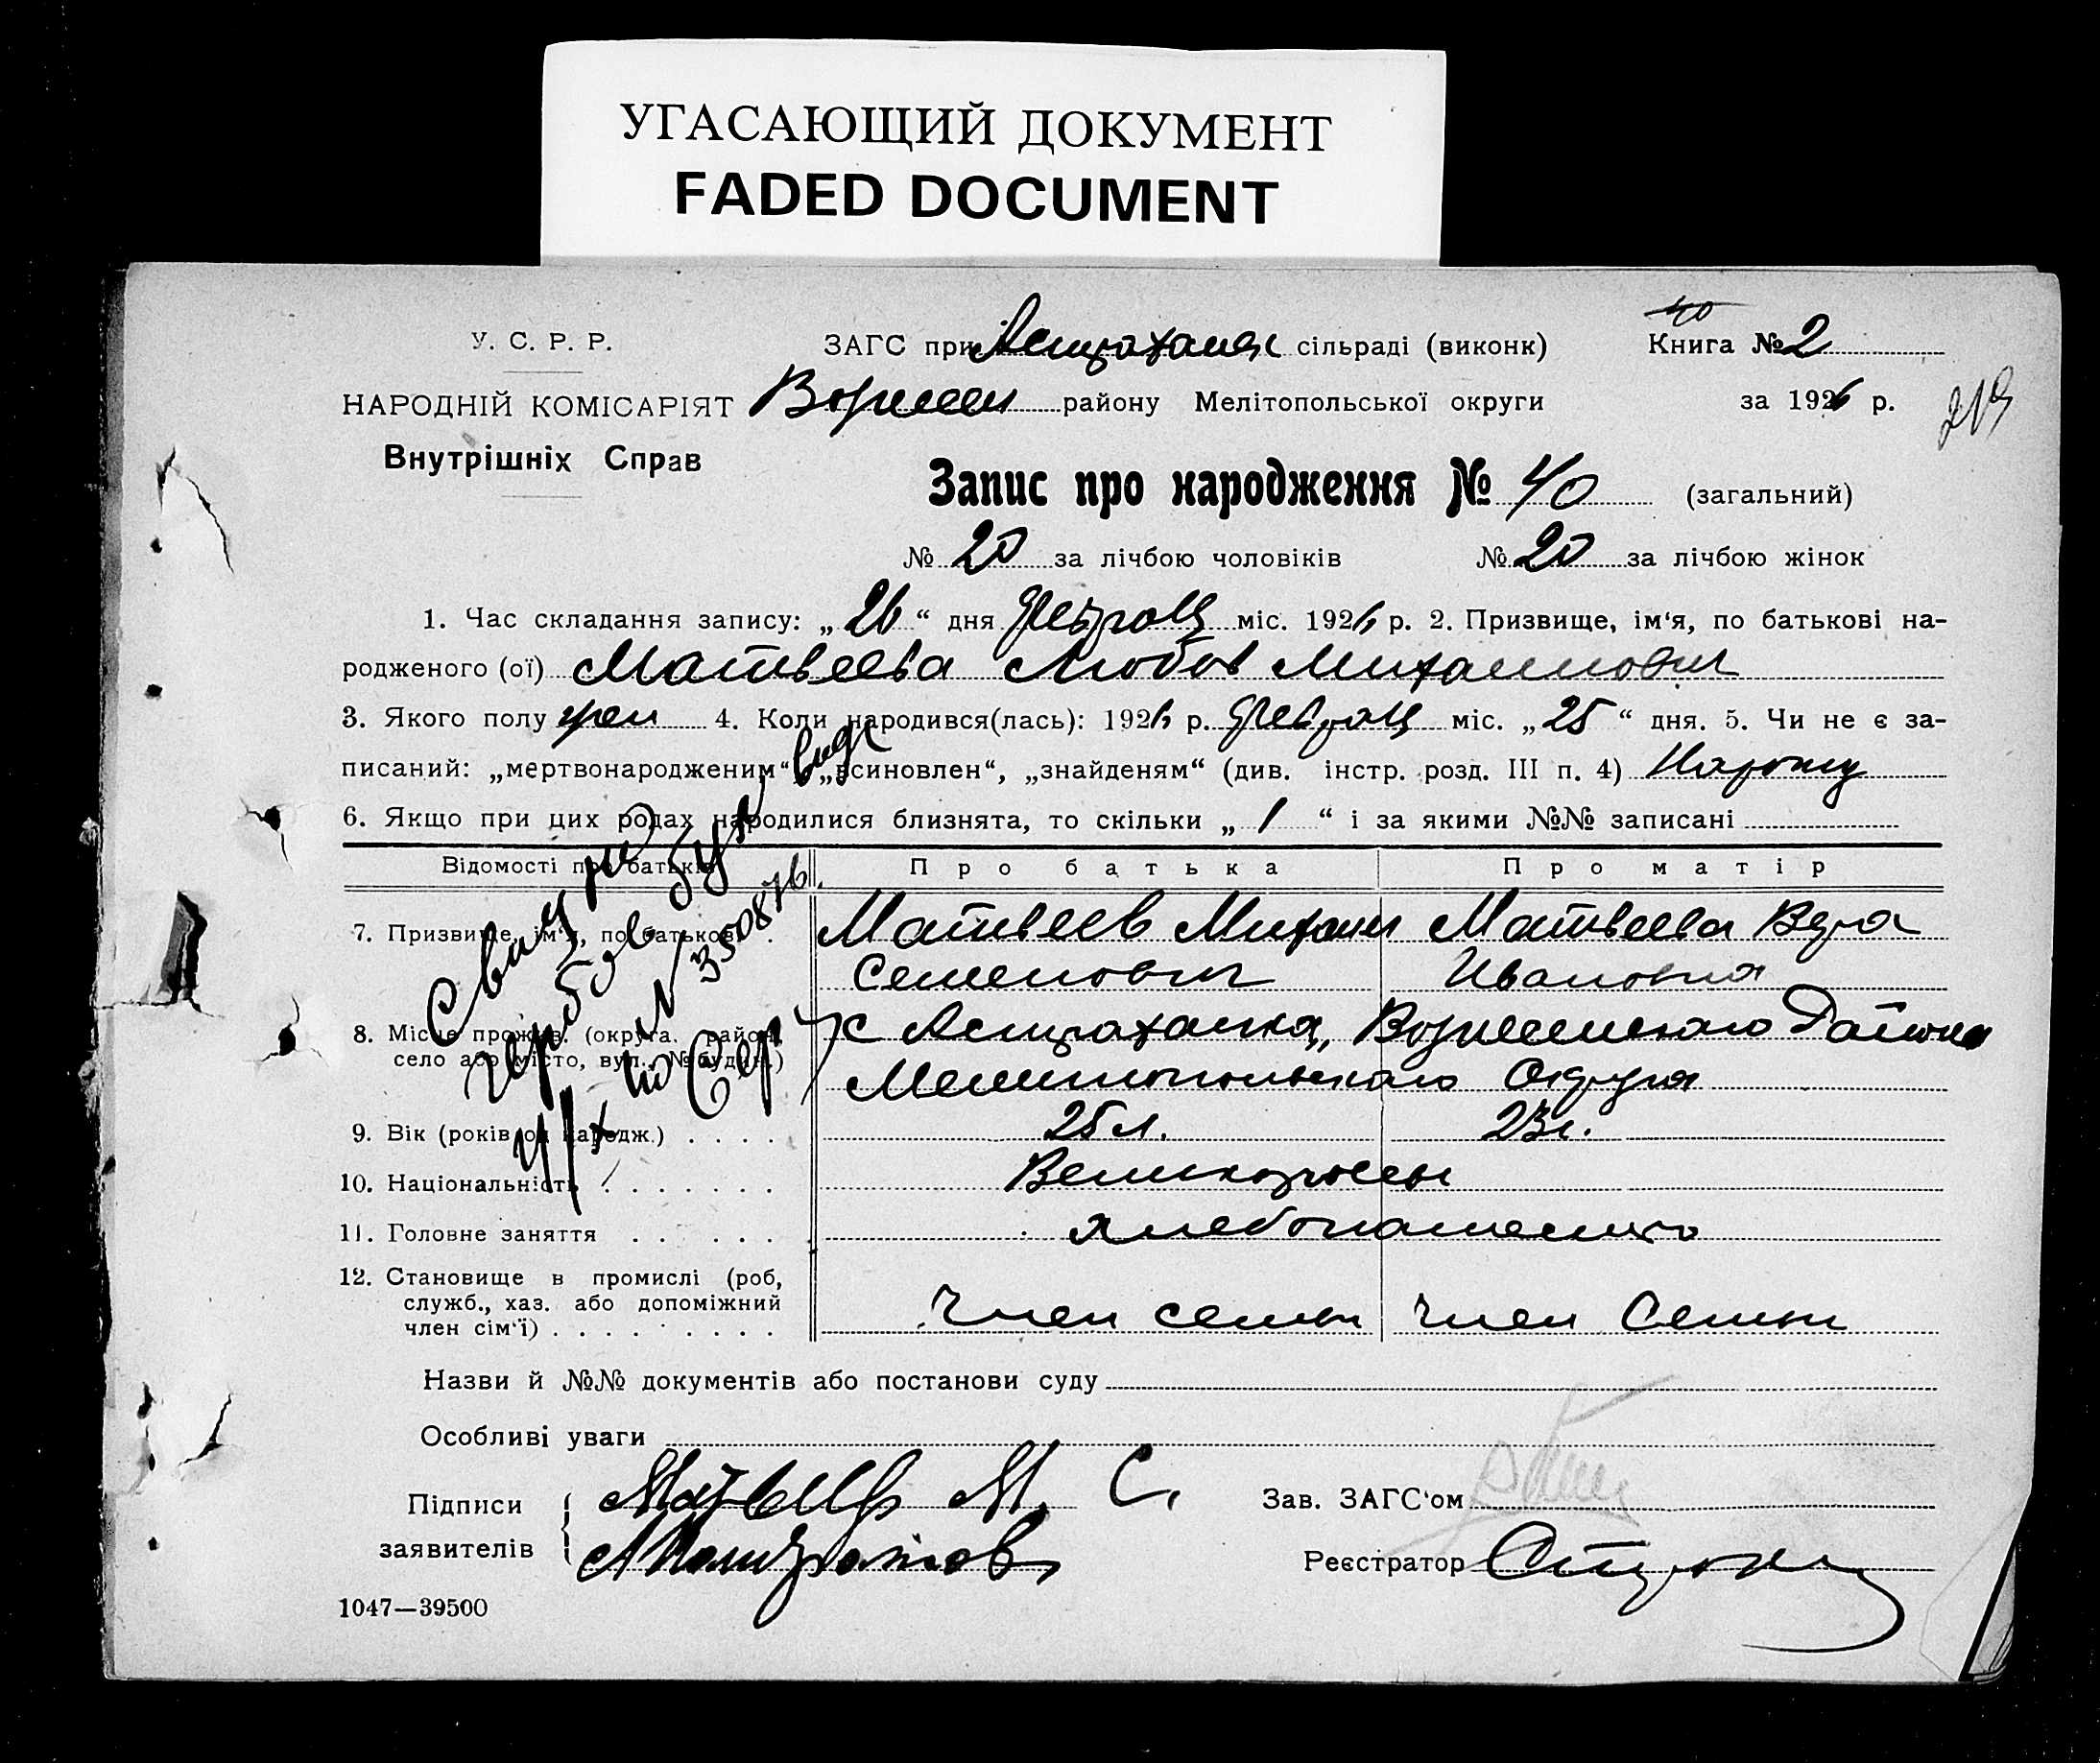 УГАСАЮЩИЙ ДОКУМЕНТ
FADED DOCUMENT
40
У. С. Р. Р.
ЗАГС при Астраханск сільраді (виконк)
Книга № 2
НАРОДНІЙ КОМІСАРІЯТ
Вознесен району Мелітопольської округи
за 1926 р.
219
Внутрішніх Справ
Запис про народження № 40 (загальний)
№ 20 за лічбою чоловіків № 20 за лічбою жінок
1. Час складання запису: „ 26 “ дня Февраля міс. 1926 р. 2. Призвище, ім‘я, по батькові на-
родженого (ої) Матвеева Любов Михаиловна
3. Якого полу жен 4. Коли народився(лась): 1926 р. Февраля міс. „ 25 “ дня. 5. Чи не є за-
писаний: „мертвонародженим“ „всиновлен“, „знайденям“ (див. інстр. розд. III п. 4)
6. Якщо при цих родах народилися близнята, то скільки „ 1 “ і за якими №№ записані
Відомості про батьків
Про батька
Про матір
7. Призвище, ім‘я, по батькові
Матвеев Михаил
Матвеева Вера
Семенович
Ивановна
8. Місце прожив. (округа. район,
село або місто, вул., № будин.)
с Астраханка, Вознесенскаго Района
Мелитопольскаго Округа
9. Вік (років од народж.)
25 л.
23 г.
10. Національність
Великороссы
11. Головне заняття
хлебопашество
12. Становище в промислі (роб,
служб., хаз. або допоміжний
член сім‘ї)
Член семьи
Член Семьи
№ 350876
Назви й №№ документів або постанови суду
Особливі уваги
Підписи
заявителів
Матвеев М. С.
Зав. ЗАГС‘ом
Реєстратор
1047—39500